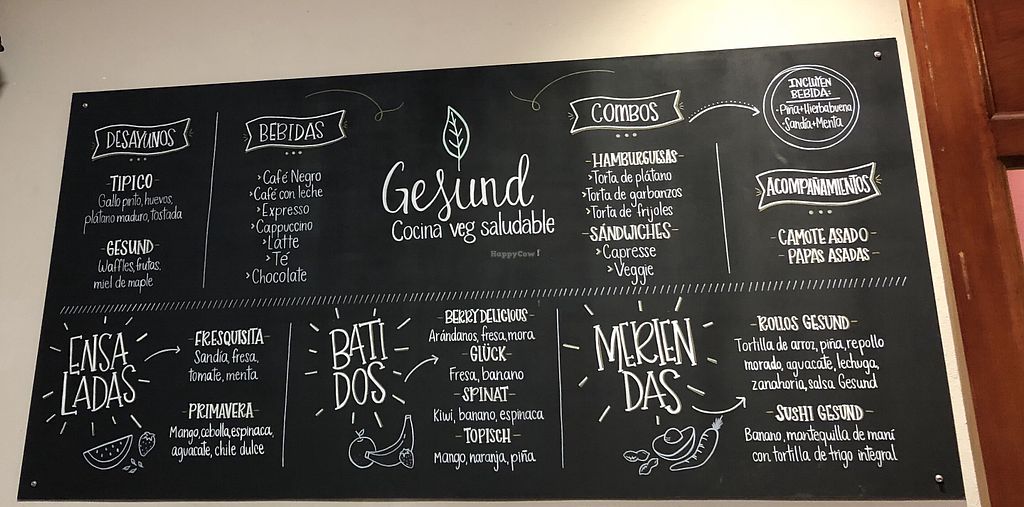 DESAYUNOS
TIPICO
Gallo pinto, huevos,
plátano maduro, tostada
GESUND
Waffles, frutas,
miel de maple
BEBIDAS
>Café Negro
>Café con leche
>Expresso
>Cappuccino
>Latte
>Té
>Chocolate
Gesund
Cocina veg saludable
HappyCow!
COMBOS
-HAMBURGUESAS-
>Torta de plátano
>Torta de garbanzos
>Torta de frijoles
-SÁNDWICHES-
>Capresse
>Veggie
INCLUYEN
BEBIDA:
-Piña+Hierbabuena
-Sandía+Menta
ACOMPAÑAMIENTOS
-CAMOTE ASADO-
-PAPAS ASADAS-
ENSA
LADAS
FRESQUISITA
Sandía, fresa,
tomate, menta
PRIMAVERA
Mango, cebolla, espinaca,
aguacate, chile dulce
BATI
DOS
-BERRY DELICIOUS-
Arándanos, fresa, mora
-GLÜCK-
Fresa, banano
-SPINAT-
Kiwi, banano, espinaca
-TOPISCH-
Mango, naranja, piña
MERIEN
DAS
-ROLLOS GESUND-
Tortilla de arroz, piña, repollo
morado, aguacate, lechuga,
zanahoria, salsa Gesund
-SUSHI GESUND-
Banano, mantequilla de maní
con tortilla de trigo integral